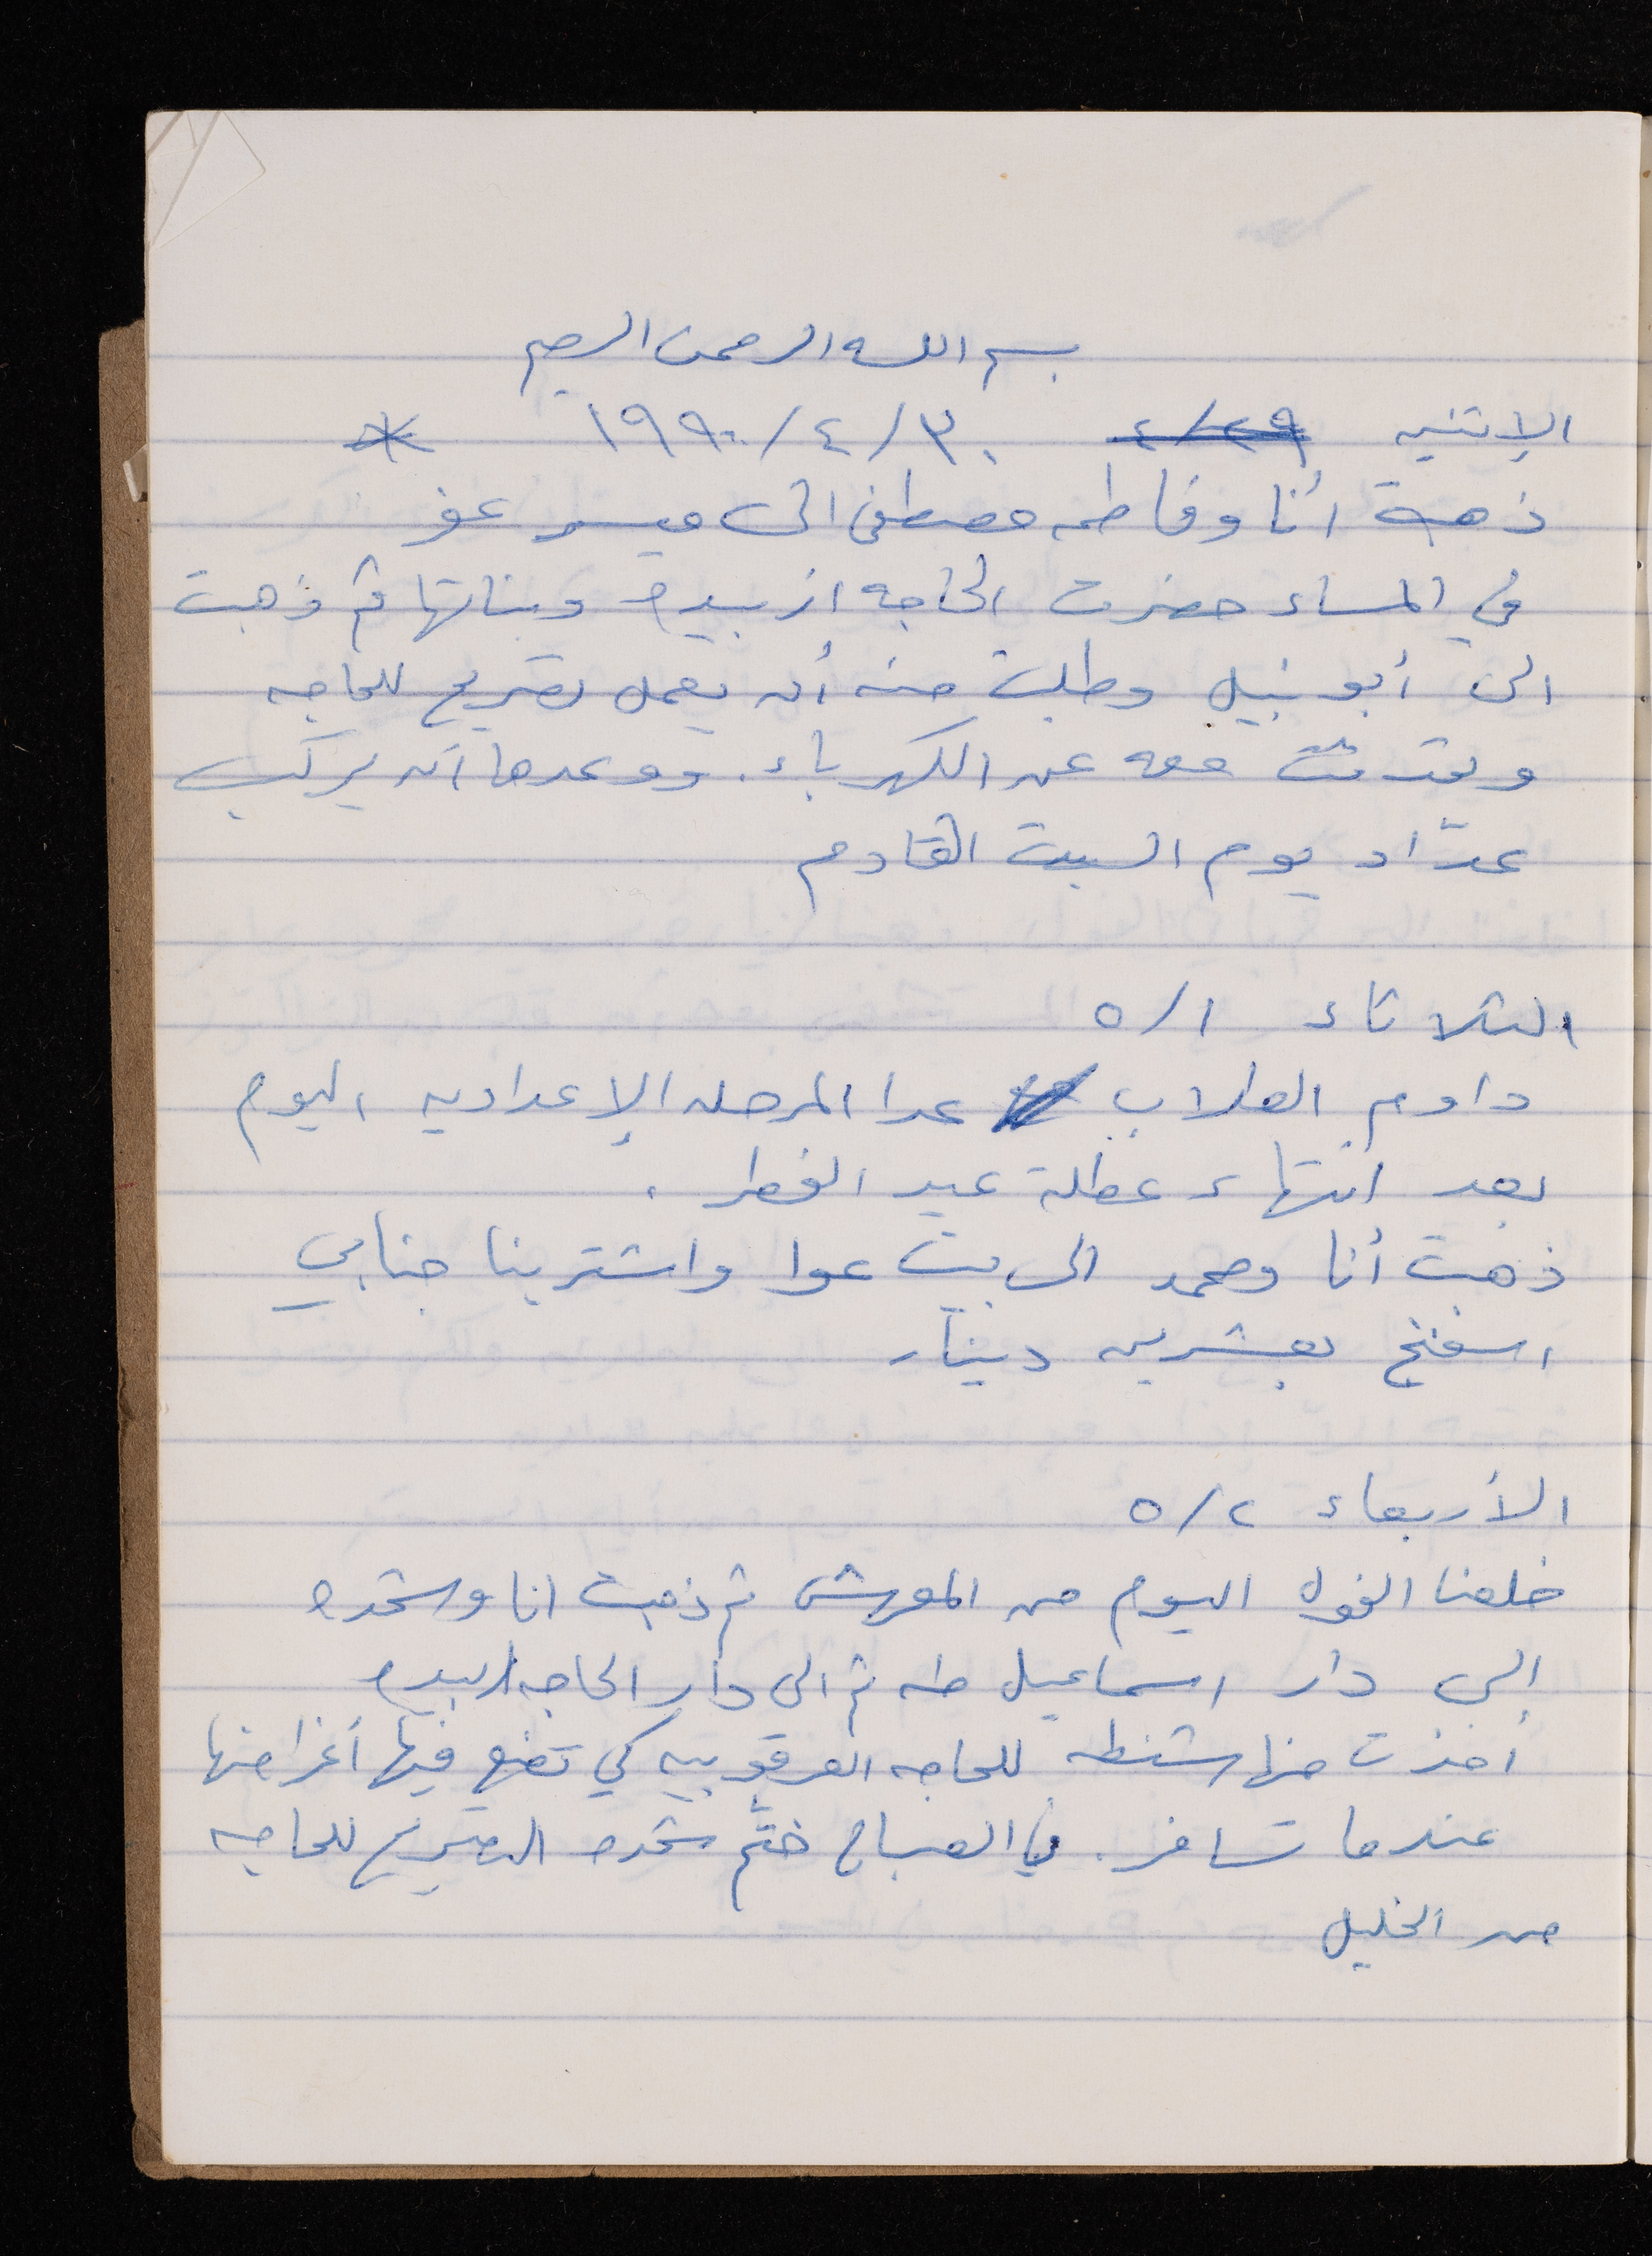 بسم الله الرحمن الرحيم
الإثنين ٤/٢٩ ٣٠/٤/١٩٩٠ *
ذهبت أنا وفاطمه مصطفى الى ميسر عفو
في المساء حضرت الحاجه ازبيده وبناتها ثم ذهبت
الى أبو نبيل وطلبت منه أن يعمل تصريح للحاجه
وتحدثت معه عن الكهرباء. ووعدها أن يركب
عدّاد يوم السبت القادم
الثلاثاء ٥/١
داوم الطلاب عدا المرحله الإعداديه اليوم
بعد انتهاء عطلة عيد الفطر.
ذهبت أنا ومحمد الى بيت عوا واشترينا جنابي
اسفنج بعشرين دينار
الأربعاء ٥/٢
خلعنا الفول اليوم من المعرش ثم ذهبت انا وشحده
إلى دار اسماعيل طه ثم الى دار الحاجه ازبيده
أخذت منها شنطه للحاجه العرقوبيه كي تضع فيها أغراضها
عندما تسافر. في الصباح ختّم شحده التصريح للحاجه
من الخليل